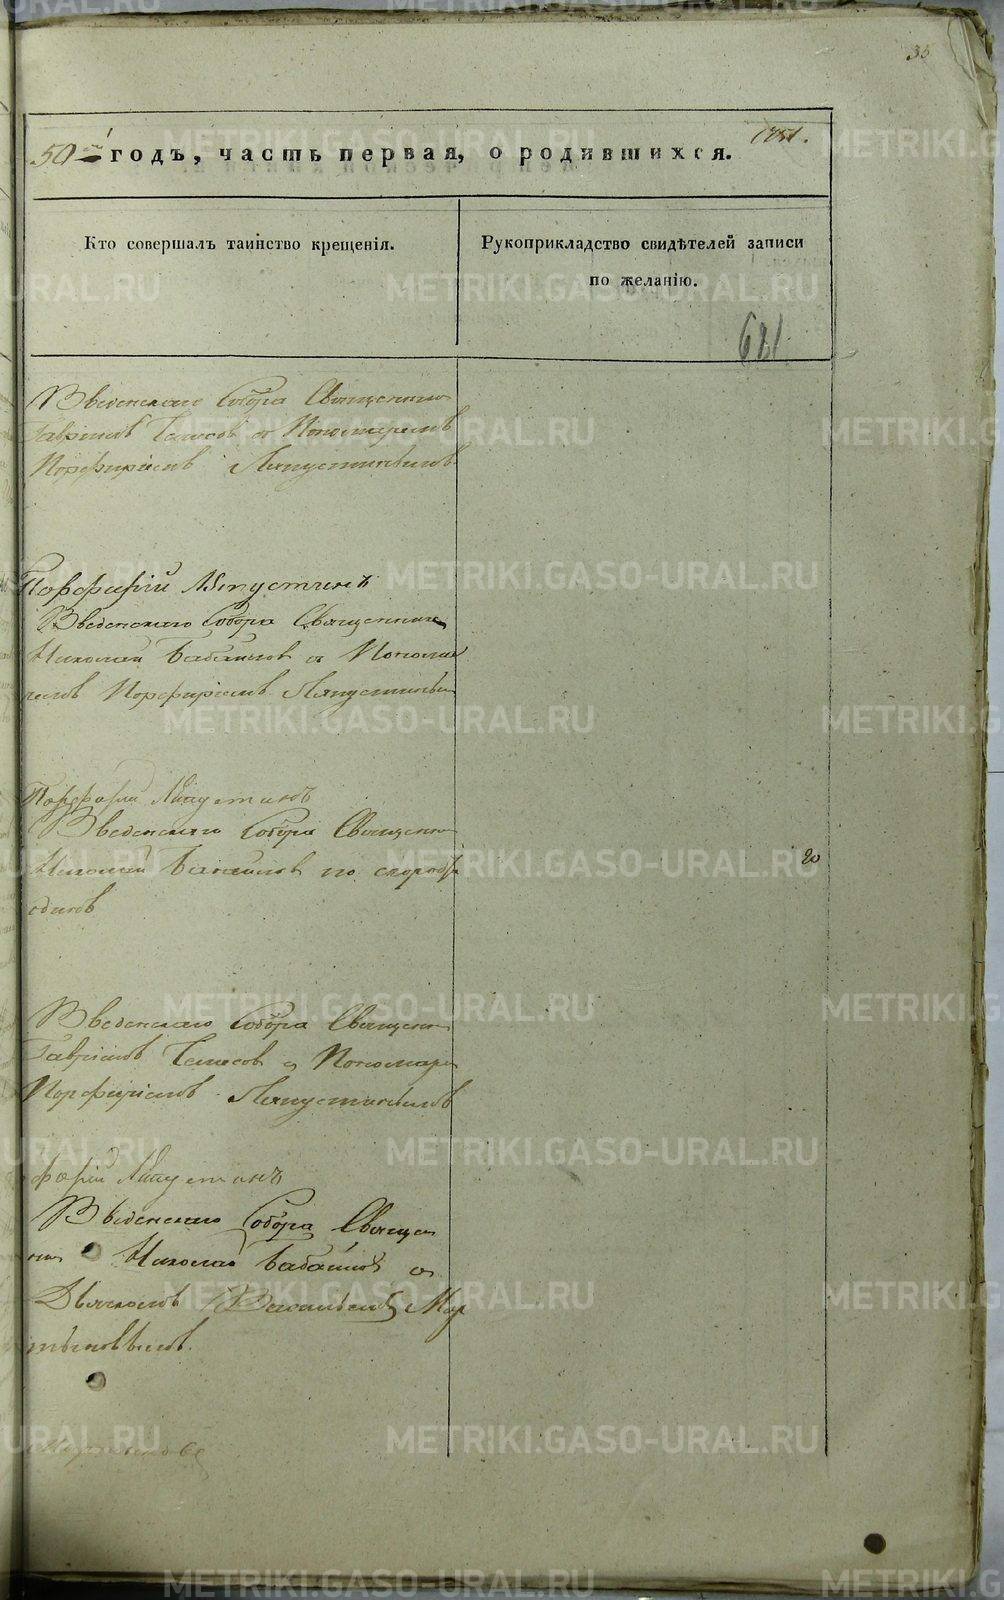 35
50 годъ, часть первая, о родившихся. 1851.
Кто совершалъ таинство крещенія.
Рукоприкладство свидѣтелей записи
по желанію.
681
Введенскаго Собора Священник
Гавріилъ и Пономаремъ
Порфиріемъ Ляпустинымъ
Порфирій Ляпустинъ
Введенскаго Собора Священник
Николай Бабайловъ и Понома
ремъ Порфиріемъ Ляпустины
Порфирій Ляпустинъ
Введенскаго Собора Священн
Николай Бабайловъ по скоро
одинъ
20
Введенскаго Собора Священн
Гавріилъ и Пономаре
Порфиріемъ Ляпустинымъ
фирій Ляпустинъ
Введенскаго Собора Священ
ник Николай Бабайловъ и
Дьячкомъ Васильемъ Мар
тыновымъ.
METRIKI.GASO-URAL.RU